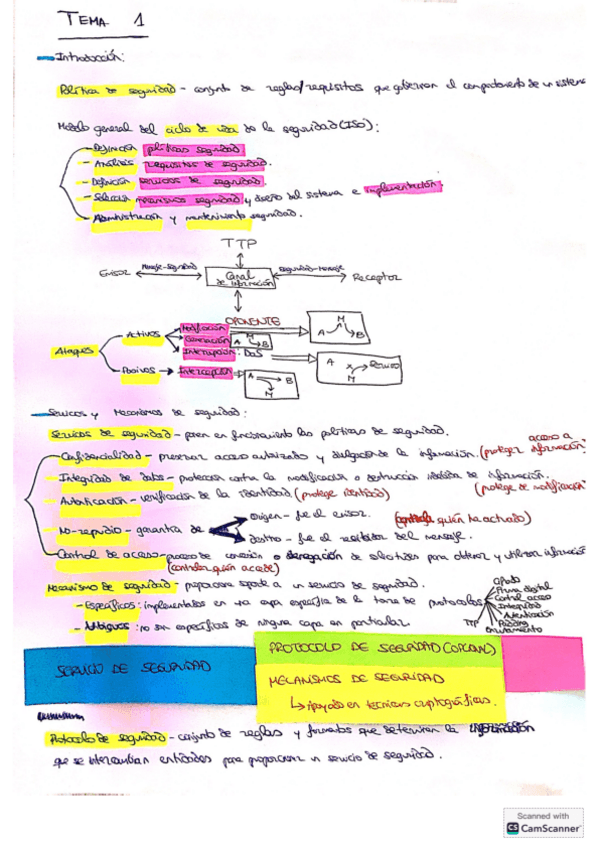 TEMA 1
Introducción:
Política de seguridad - conjunto de reglas/requisitos que gobiernan el comportamiento de un sistema
Modelo general del ciclo de vida de la seguridad (ISO):
- Definición políticas seguridad
- Análisis requisitos de seguridad.
- Definición servicios de seguridad.
- Selección mecanismos seguridad y diseño del sistema e implementación.
- Administración y mantenimiento seguridad.
TTP
Emisor Mensaje-seguridad Canal de información Seguridad-mensaje Receptor
OPONENTE
Ataques
Activos
Modificación A M B
Generación A M B
Interrupción: DoS A x M
Pasivos Intercepción A B M
Servicios y Mecanismos de seguridad:
Servicios de seguridad - ponen en funcionamiento las políticas de seguridad.
Confidencialidad - preservar acceso autorizado y divulgación de la información. (proteger acceso a información)
Integridad de datos - protección contra la modificación o destrucción indebida de información. (protege de modificación)
Autenticación - verificación de la identidad (protege identidad)
No-repudio - garantía de origen - fue el emisor. (controla quién ha actuado)
destino - fue el receptor del mensaje.
Control de acceso - proceso de concesión o denegación de solicitudes para obtener y utilizar información
(controlar quién accede)
Mecanismo de seguridad - proporciona soporte a un servicio de seguridad.
- Específicos: implementados en una capa específica de la torre de protocolos
Cifrado
Firma digital
Control acceso
Integridad
Autenticación
Padding
TTP
Enrutamiento
- Ambiguos: no son específicos de ninguna capa en particular
SERVICIO DE SEGURIDAD
PROTOCOLO DE SEGURIDAD
MECANISMOS DE SEGURIDAD
↳ apoyado en técnicas criptográficas.
Protocolo de seguridad - conjunto de reglas y formatos que determinan la información
que se intercambian entidades para proporcionar un servicio de seguridad.
Scanned with
CS CamScanner